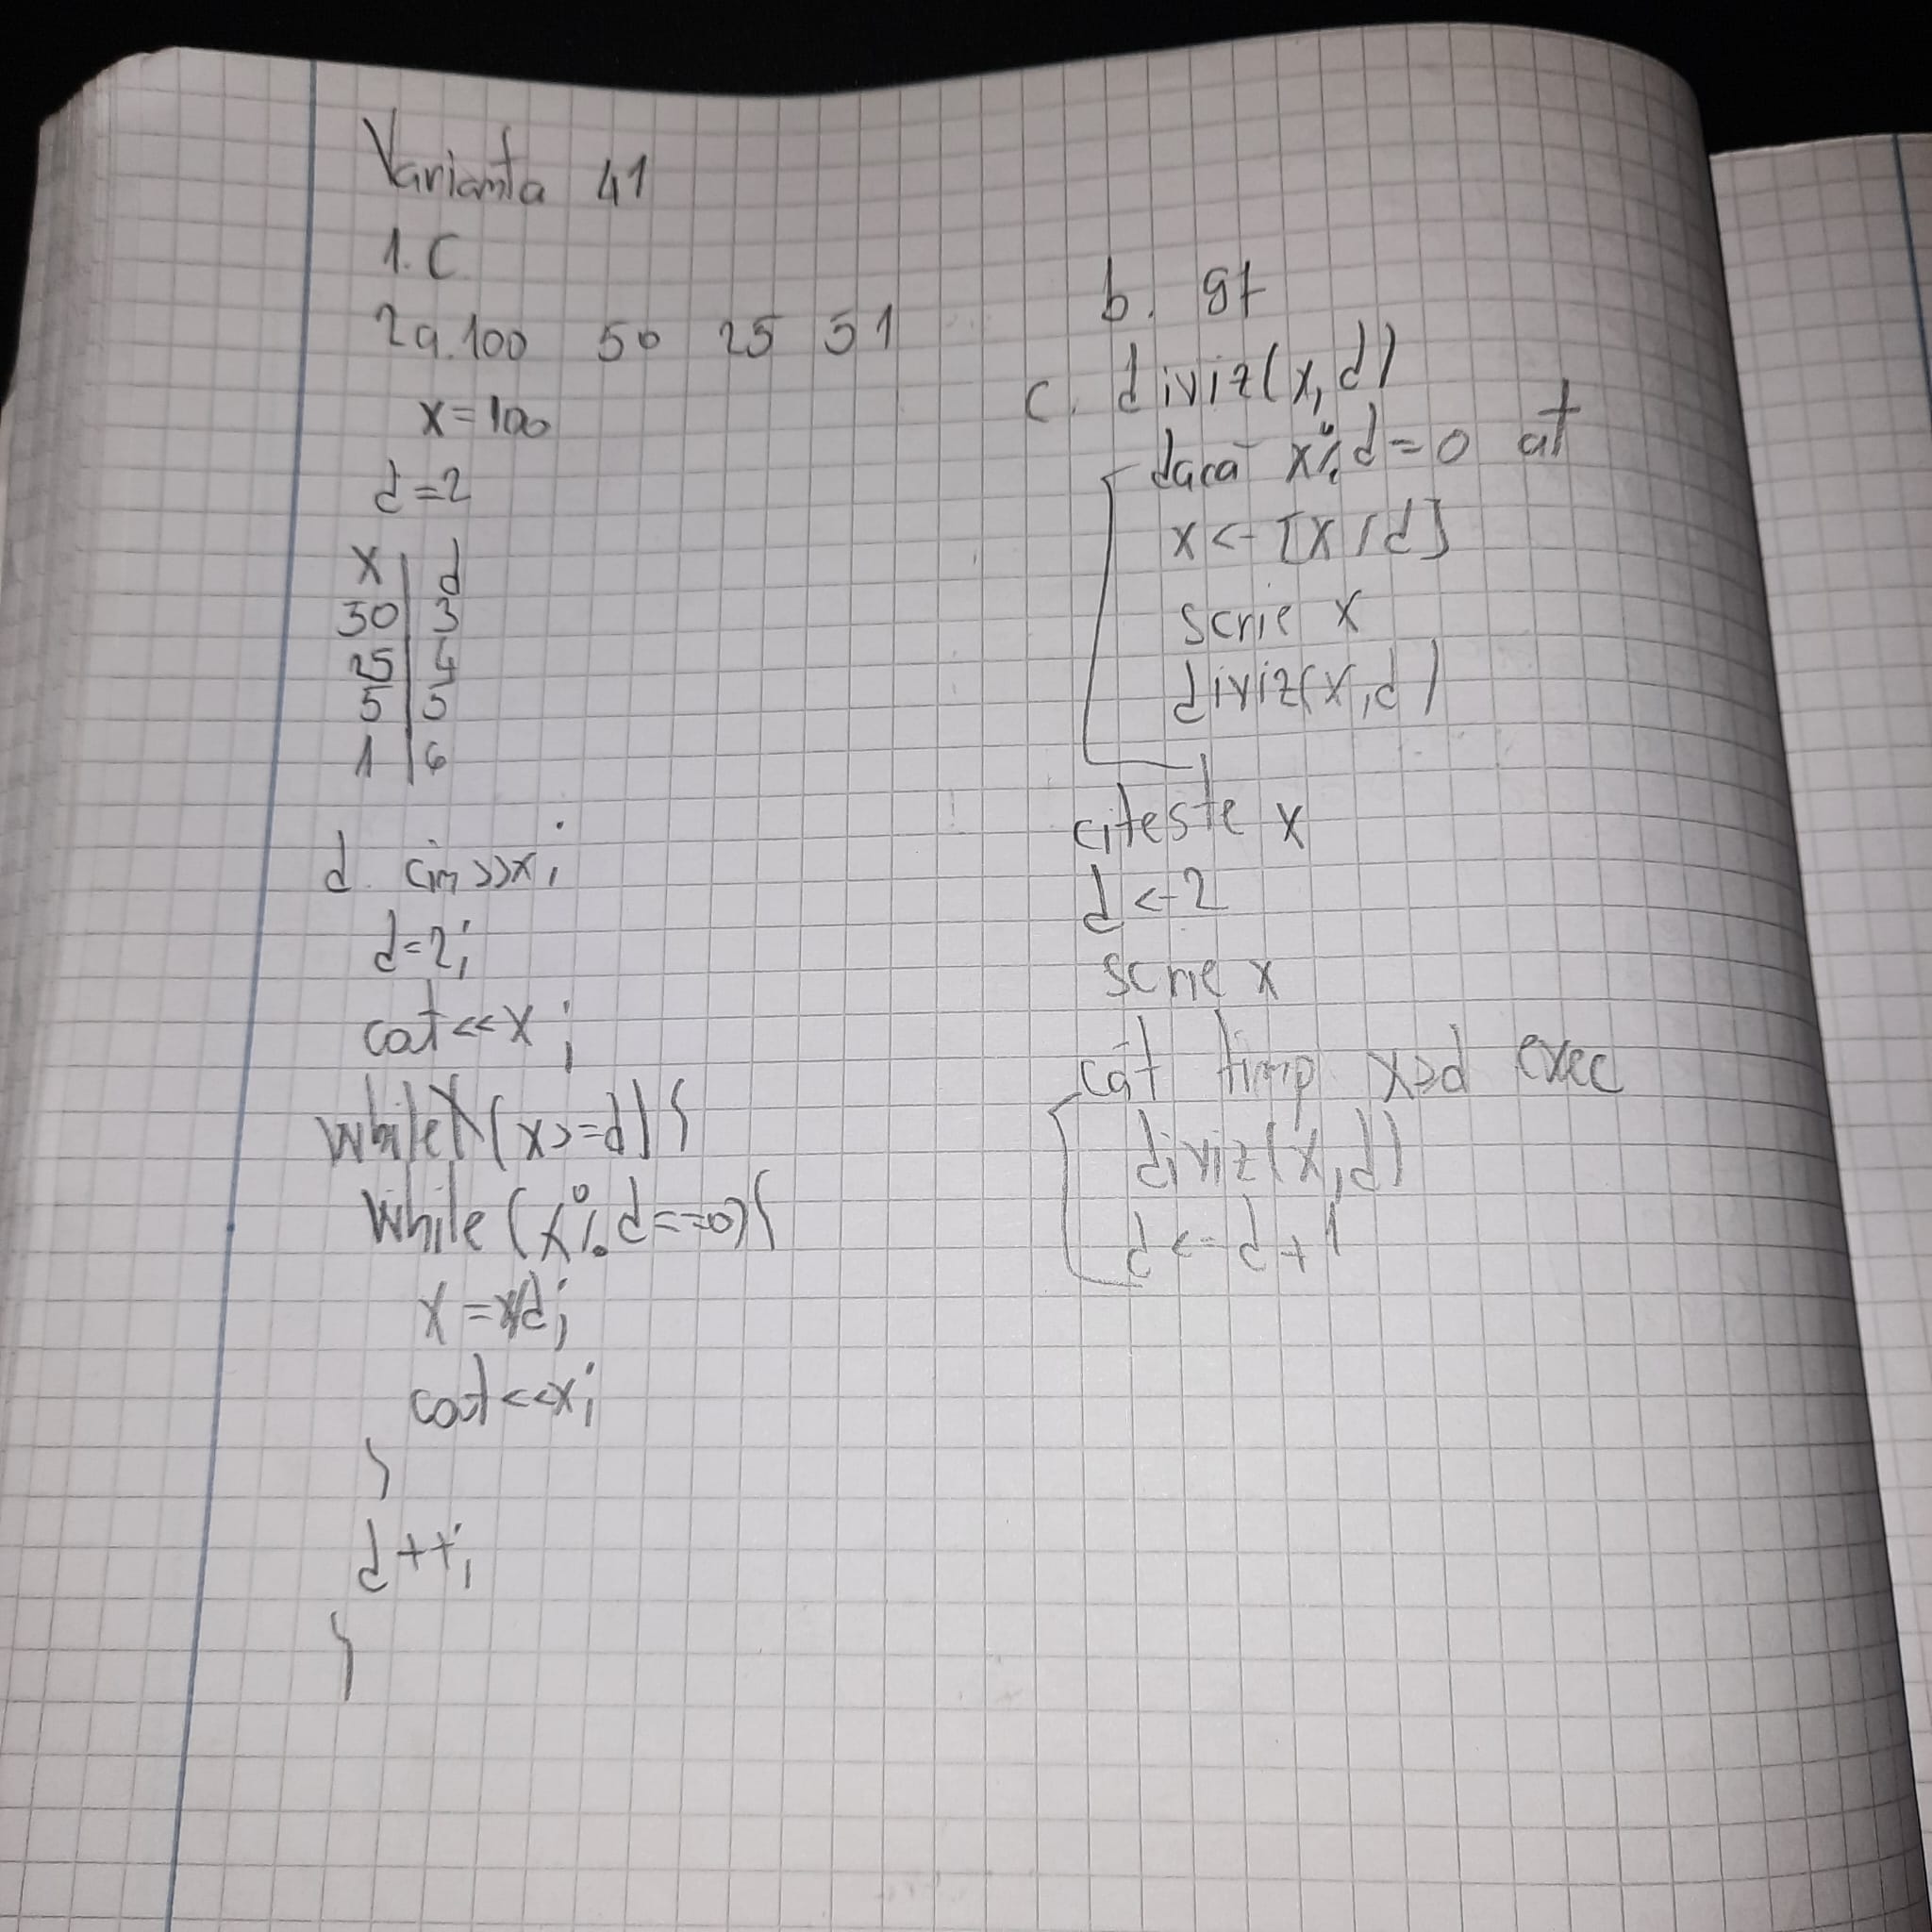 Varianta 41
1. C
2a. 100 50 25 51
x=100
d=2
x d
50 3
25 4
5 5
1 6
d. cin>>x;
d=2;
cout<<x;
while (x>=d){
while (x%d==0){
x=x/d;
cout<<x;
}
d++;
}
b. 97
c. diviz(x,d)
dacă x%d=0 at
x<-[x/d]
scrie x
diviz(x,d)
citeste x
d<-2
scrie x
cât timp x>d exec
diviz(x,d)
d<-d+1